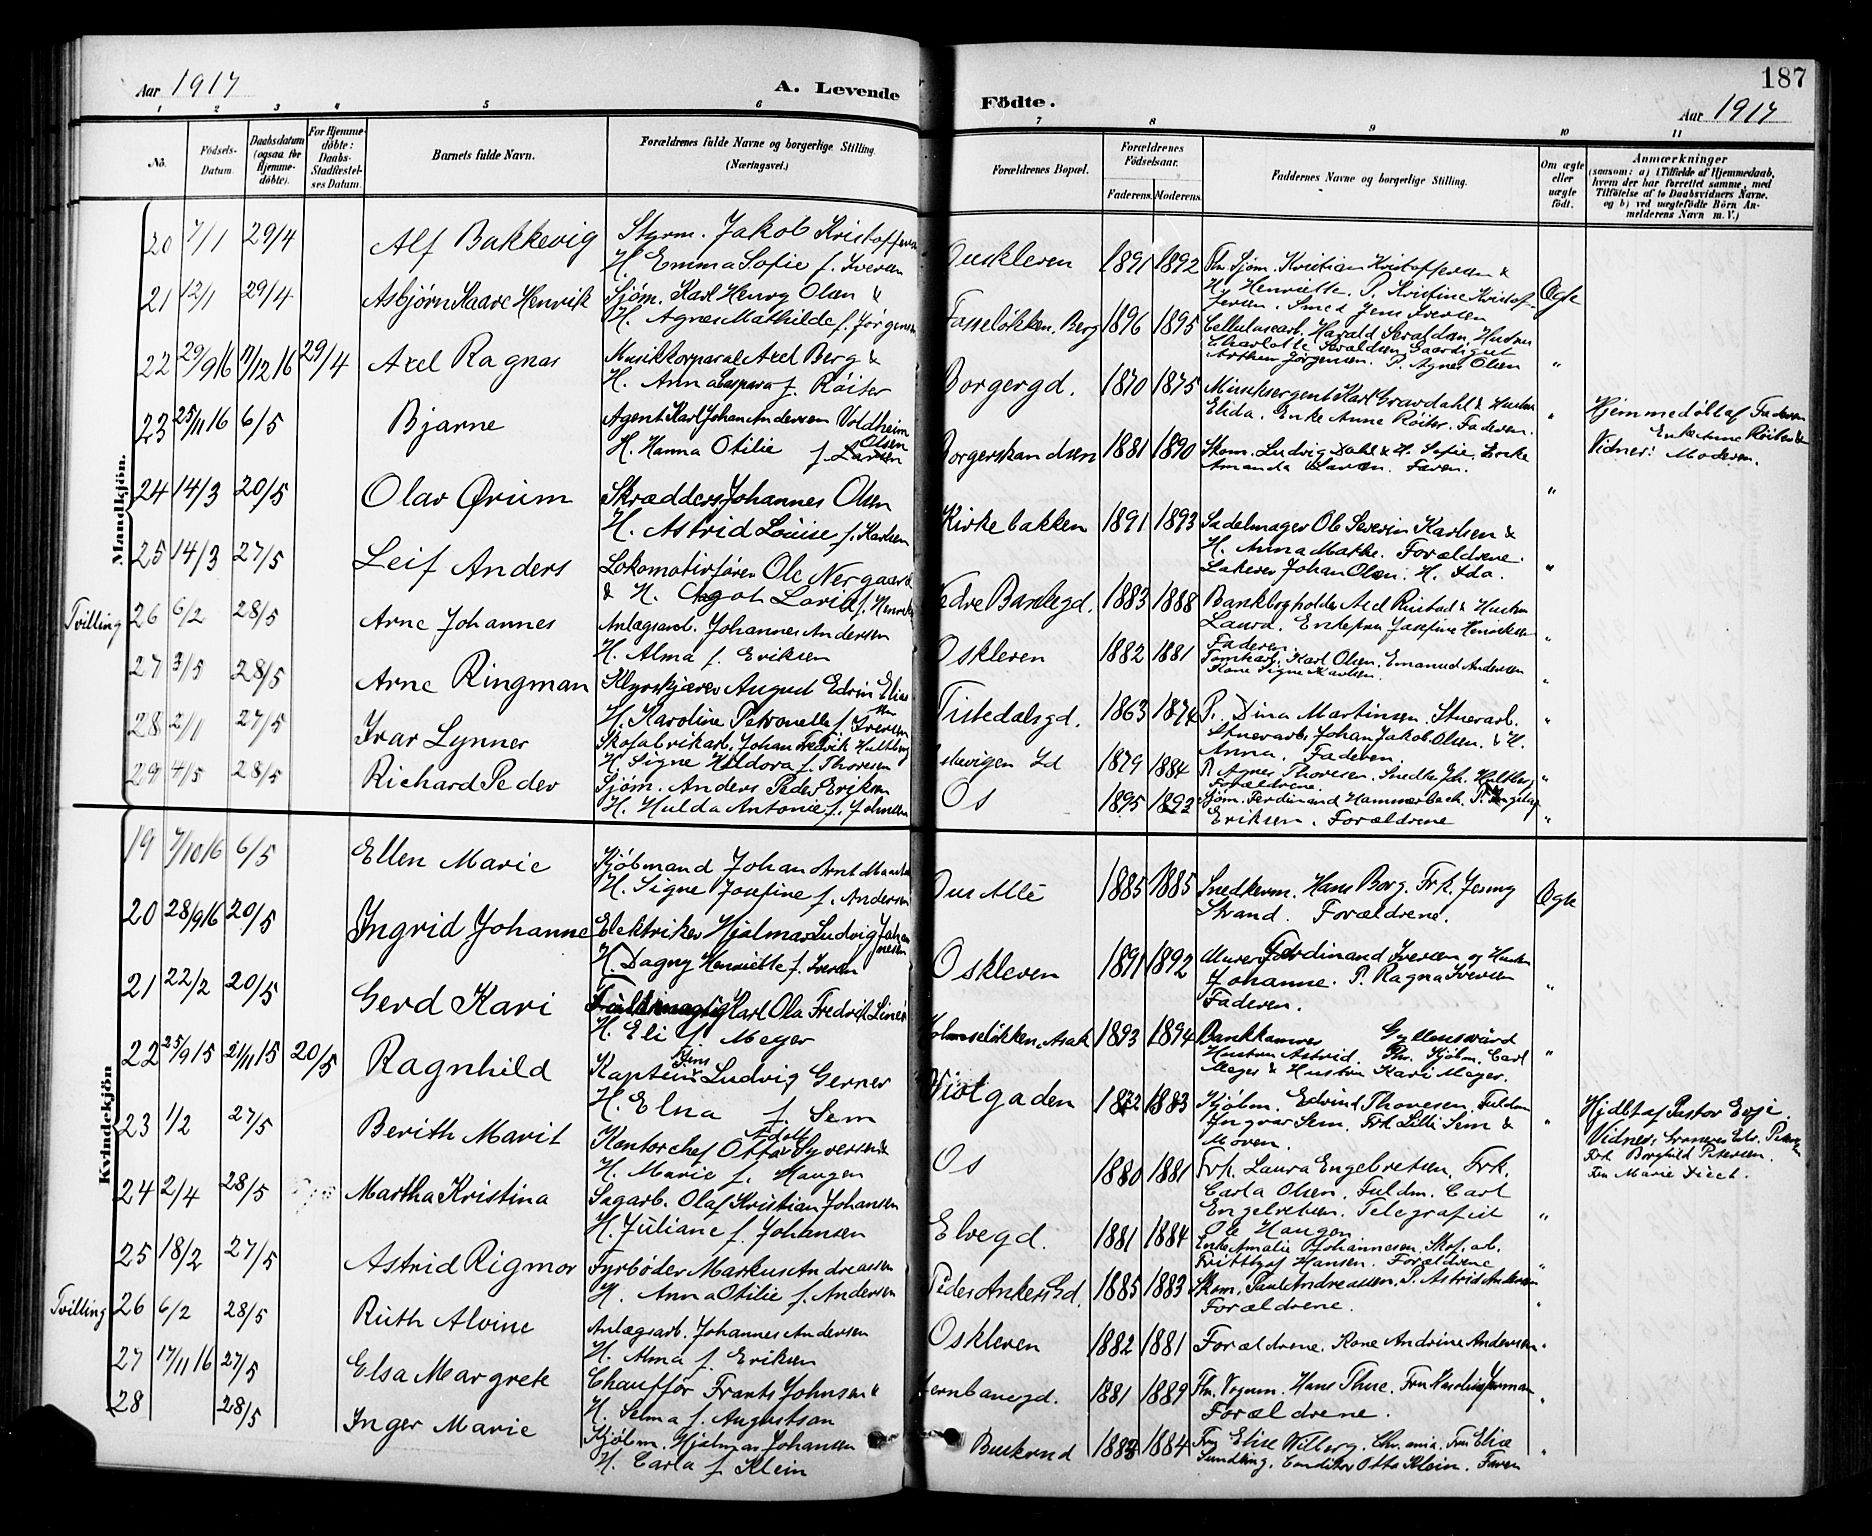 187
Aar 1917
A. Levende
Födte.
Aar 1917
1 2 3 4 5 6 7 8 9 10 11
No.
Födsels-Datum.
Daabsdatum (ogsaa for Hjemme-döbte).
For Hjemme-döbte: Daabs-Stadfæstel-ses Datum.
Barnets fulde Navn.
Forældrenes fulde Navne og borgerlige Stilling. (Næringsvei.)
Forældrenes Bopæl.
Forældrenes Födselsaar.
Faderens. Moderens.
Faddernes Navne og borgerlige Stilling.
Om ægte eller uægte födt.
Anmærkninger
(saasom: a) i Tilfælde af Hjemmedaab, hvem der har forrettet samme, med Tilföielse af to Daabsvidners Navne, og b) ved uægtefödte Börn An-melderens Navn m. V.)
Mandkjön.
20 7/1 29/4 Alf Bakkevig Styrm. Jakob Kristoffersen
H. Emma Sofie f. Iversen
Ouskleven 1891 1892 Fhv. Sjøm. Kristian Kristoffersen &
H. Henriette. P. Kristine Kristof-
fersen. Smed Jens Iversen
Ægte
21 12/1 29/4 Asbjørn Kaare Henrik Sjøm. Karl Henry Olsen &
H. Agnes Mathilde f. Jørgensen
Fasseløkken. Berg 1896 1895 Cellulosearb. Harald Seraldsen, Hustru
Charlotte Seraldsen, Gaardsgut
Arthur Jørgensen. P. Agnes Olsen "
22 29/9 16 7/12 16 29/4 Axel Ragnar Musikkorporal Axel Berg &
H. Anna Caspara f. Røiter
Borgergd. 1870 1875 Musiksergent Karl Gravdahl & Hustru
Elida. Enke Anne Røiter. Faderen. "
Hjemmedøbt af Faderen
Enke Anne Røiter &
Vidner: Moderen.
23 25/11 16 6/5 Bjarne Agent Karl Johan Andersen Voldheim
H. Hanna Otilie f. Larsen Olsen
Borgerskandsen 1881 1890 Skom. Ludvig Dahl & H. Sofie. Enke
Amanda Larsen. Faren. "
24 14/3 20/5 Olav Ørum Skrædders. Johannes Olsen
H. Astrid Louise f. Karlsen
Kirkebakken 1891 1893 Sadelmager Ole Severin Karlsen &
H. Anna Mathe. Forældrene.
Lakerer Johan Olsen. H. Ida. "
25 14/3 27/5 Leif Anders Lokomotivfører Ole Nergaard
& H. Aagot Lovise f. Henriksen
Nedre Bankegd. 1883 1888 Bankbogholder Axel Rustad & Hustru
Laura. Enkefru Josefine Henriksen
Faderen. "
Tvilling 26 6/2 28/5 Arne Johannes Anlægsarb. Johannes Andersen
H. Alma f. Eriksen
Oskleven 1882 1881 Tomtearb. Karl Olsen. Emanuel Andersen
Kone Signe Karlsen. "
27 3/5 28/5 Arne Ringman August Edvin Elias
sen
H. Karoline Petronelle f. Iversen
Tistedalsgd. 1863 1874 P. Dina Martinsen. Stuerarb.
Stuerarb. Johan Jakob Olsen. & H.
Anna. Faderen. "
28 2/1 27/5 Ivar Lynner Skofabrikarb. Johan Fredrik Hultberg
H. Signe Haldora f. Thoresen
1879 1884 P. Agnes Thoresen. Snedker Joh. Hultberg
Forældrene. "
29 4/5 28/5 Richard Peder Sjøm. Anders Peder Eriksen
H. Hulda Antonie f. Johnsen
Os 1895 1892 Sjøm. Ferdinand Hammerbach. P.
Eriksen. Forældrene "
Kvindekjön
19 7/10 16 6/5 Ellen Marie Kjøbmand Johan Arnt
H. Signe Josefine f. Andersen
Ous Alle 1885 1885 Snedkerm. Hans Borg. Frk. Jenny
Strand. Forældrene. Ægte
20 28/9 16 20/5 Ingrid Johanne Elektriker Hjalmar Ludvig Johan
nesen
H. Dagny Henriette f. Iversen
Oskleven 1891 1892 Murer Ferdinand Iversen og Hustru
Johanne. P. Ragna Iversen
Faderen. "
21 22/2 20/5 Gerd Kari Fuldmægtig Karl Ola Fredrik Liner
H. Eli f. Meyer
Holmseløkken. Asak 1893 1894 Bankkasserer Gyllensvärd
Hustru Astrid. Fhv. Kjøbm. Carl
Meyer & Hustru Kari Meyer. "
22 25/9 15 21/11 15 20/5 Ragnhild Kaptein Jens Ludvig Gerner
H. Elna f. Sem
Violgaden 1872 1883 Kjøbm. Edvind Thoresen. Fuldm
Yngvar Sem. Frk. Lilli Sem &
Moren. "
Hjdbt af Pastor Evje.
Vidner:
Frk Borghild Petersen.
Fru Marie Diect.
23 1/2 27/5 Berith Marit Kontorchef Ottar Adolf Syversen &
H. Marie f. Haugen
Os 1880 1881 Frk. Laura Engebretsen. Frk.
Carla Olsen. Fuldm. Carl
Engebretsen. Telegrafist
Ole Haugen "
24 2/4 28/5 Martha Kristina Sagarb. Olaf Kristian Johansen
H. Juliane f. Johansen
Elvegd. 1881 1884 Enke Amalie Johannesen. Skof. arb.
Frithjof Hansen. Forældrene "
25 18/2 27/5 Astrid Rigmor Fyrbøder Markus Andreassen
H. Anna Otilie f. Andersen
Peder Ankers Gd. 1885 1883 Skom. Paul Andreassen, P. Astrid Andersen
Forældrene. "
Tvilling 26 6/2 28/5 Ruth Alvine Anlægsarb. Johannes Andersen
H. Alma f. Eriksen
Oskleven 1882 1881 Forældrene. Kone Andrine Andersen "
27 17/11 16 27/5 Elsa Margrete Chauffør Frants Johnsen &
H. Selma f. Augustson
Jernbanegd. 1881 1889 Fhv. Vognm. Hans Thue. Fru
Forældrene. "
28 28/5 Inger Marie Kjøbm. Hjalmar Johansen
H. Carla f. Klein
Buskrud 1883 1884 Fru Elise Wilberg. Chr.ania. Fru Elise
Sundling. Conditor Otto Klein. Faren "